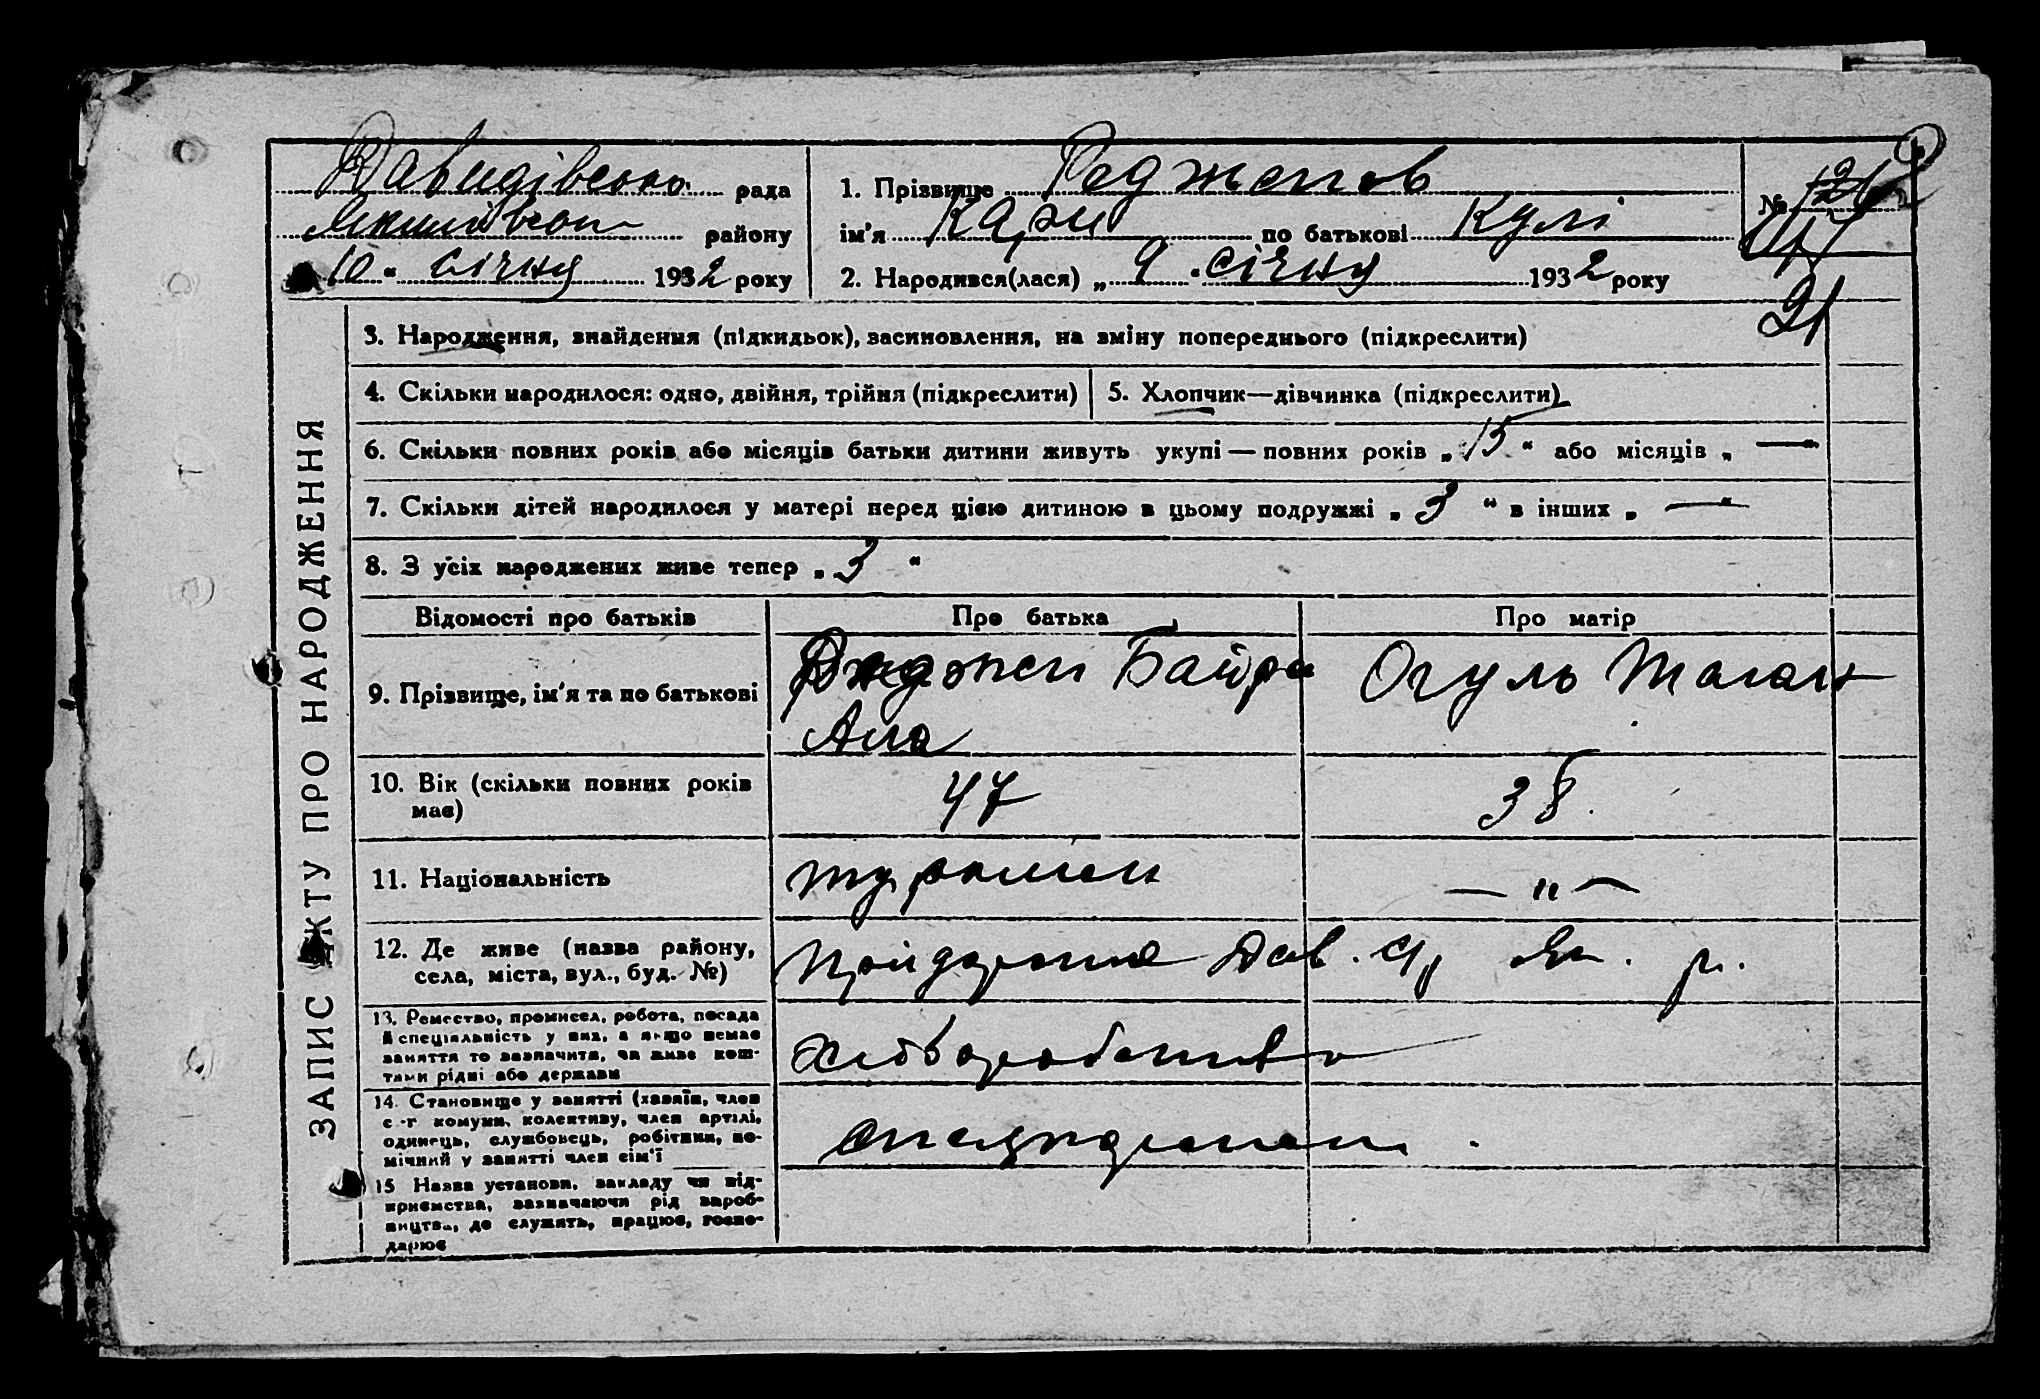 Давидівська рада
Якимівського району
„10“ січня 1932 року
1. Прізвище Реджепов
ім'я Кари по батькові Кулі
2. Народився(лася) „9“ січня 1932 року
№
21
ЗАПИС АКТУ ПРО НАРОДЖЕННЯ
3. Народження, знайдення (підкидьок), засиновлення, на зміну попереднього (підкреслити)
4. Скільки народилося: одно, двійня, трійня (підкреслити)
5. Хлопчик—дівчинка (підкреслити)
6. Скільки повних років або місяців батьки дитини живуть укупі — повних років „15“ або місяців „—“
7. Скільки дітей народилося у матері перед цією дитиною в цьому подружжі „3“ в інших „—“
8. З усіх народжених живе тепер „3“
Відомості про батьків Про батька Про матір
9. Прізвище, ім'я та по батькові Реджеп Байра Огуль
10. Вік (скільки повних років має) 47 38
11. Національність туркмен —"—
12. Де живе (назва району, села, міста, вул., буд. №) Дав. с/р Як. р.
13. Ремество, промисел, робота, посада й спеціяльність у них, а якщо немає заняття то зазначити, чи живе коштами рідні або держави
хліборобство
14. Становище у занятті (хазяїн, член с.-г комуни, колективу, член артілі, одинець, службовець, робітник, помічний у занятті член сім'ї
15 Назва установи, закладу чи підприємства, зазначаючи рід виробництва, де служить, працює, господарює